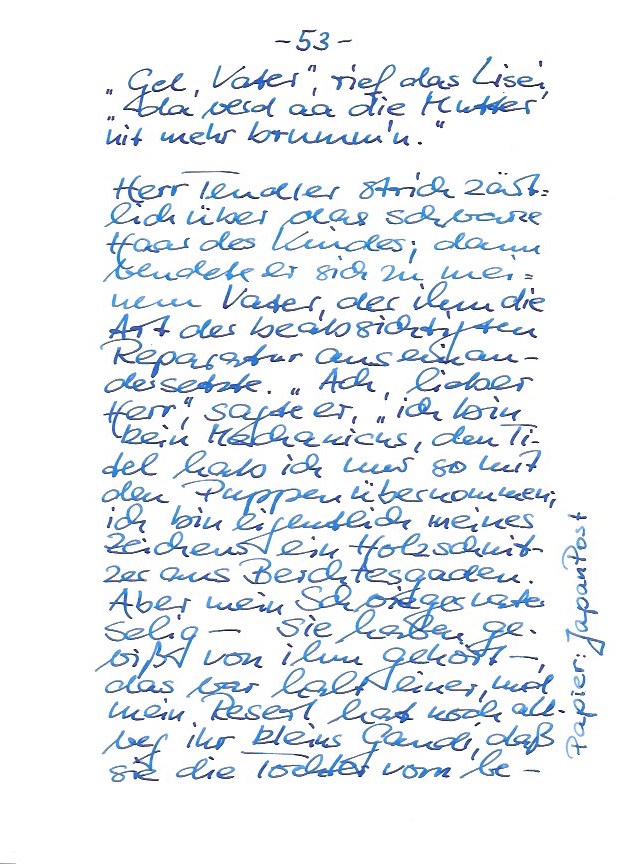 - 53 -
„Gel, Vater", rief das Lisei,
„da werd aa die Mutter
nit mehr brumm'n."
Herr Tendler strich zärt=
lich über das schwarze
Haar des Kindes; dann
wendete er sich zu mei=
nem Vater, der ihm die
Art der beabsichtigten
Reparatur auseinan-
dersetzte. „Ach, lieber
Herr", sagte er, „ich bin
kein Mechanicus, den Ti-
tel hab ich nur so mit
den Puppen übernommen;
ich bin eigentlich meines
Zeichens ein Holzschnit-
zer aus Berchtesgaden.
Aber mein Schwiegervater
selig – Sie haben ge-
wißt von ihm gehört –,
das war halt einer, und
mein Reserl hat noch all-
weg ihr kleins Gaudi, daß
sie die Tochter vom be-
Papier: JapanPost